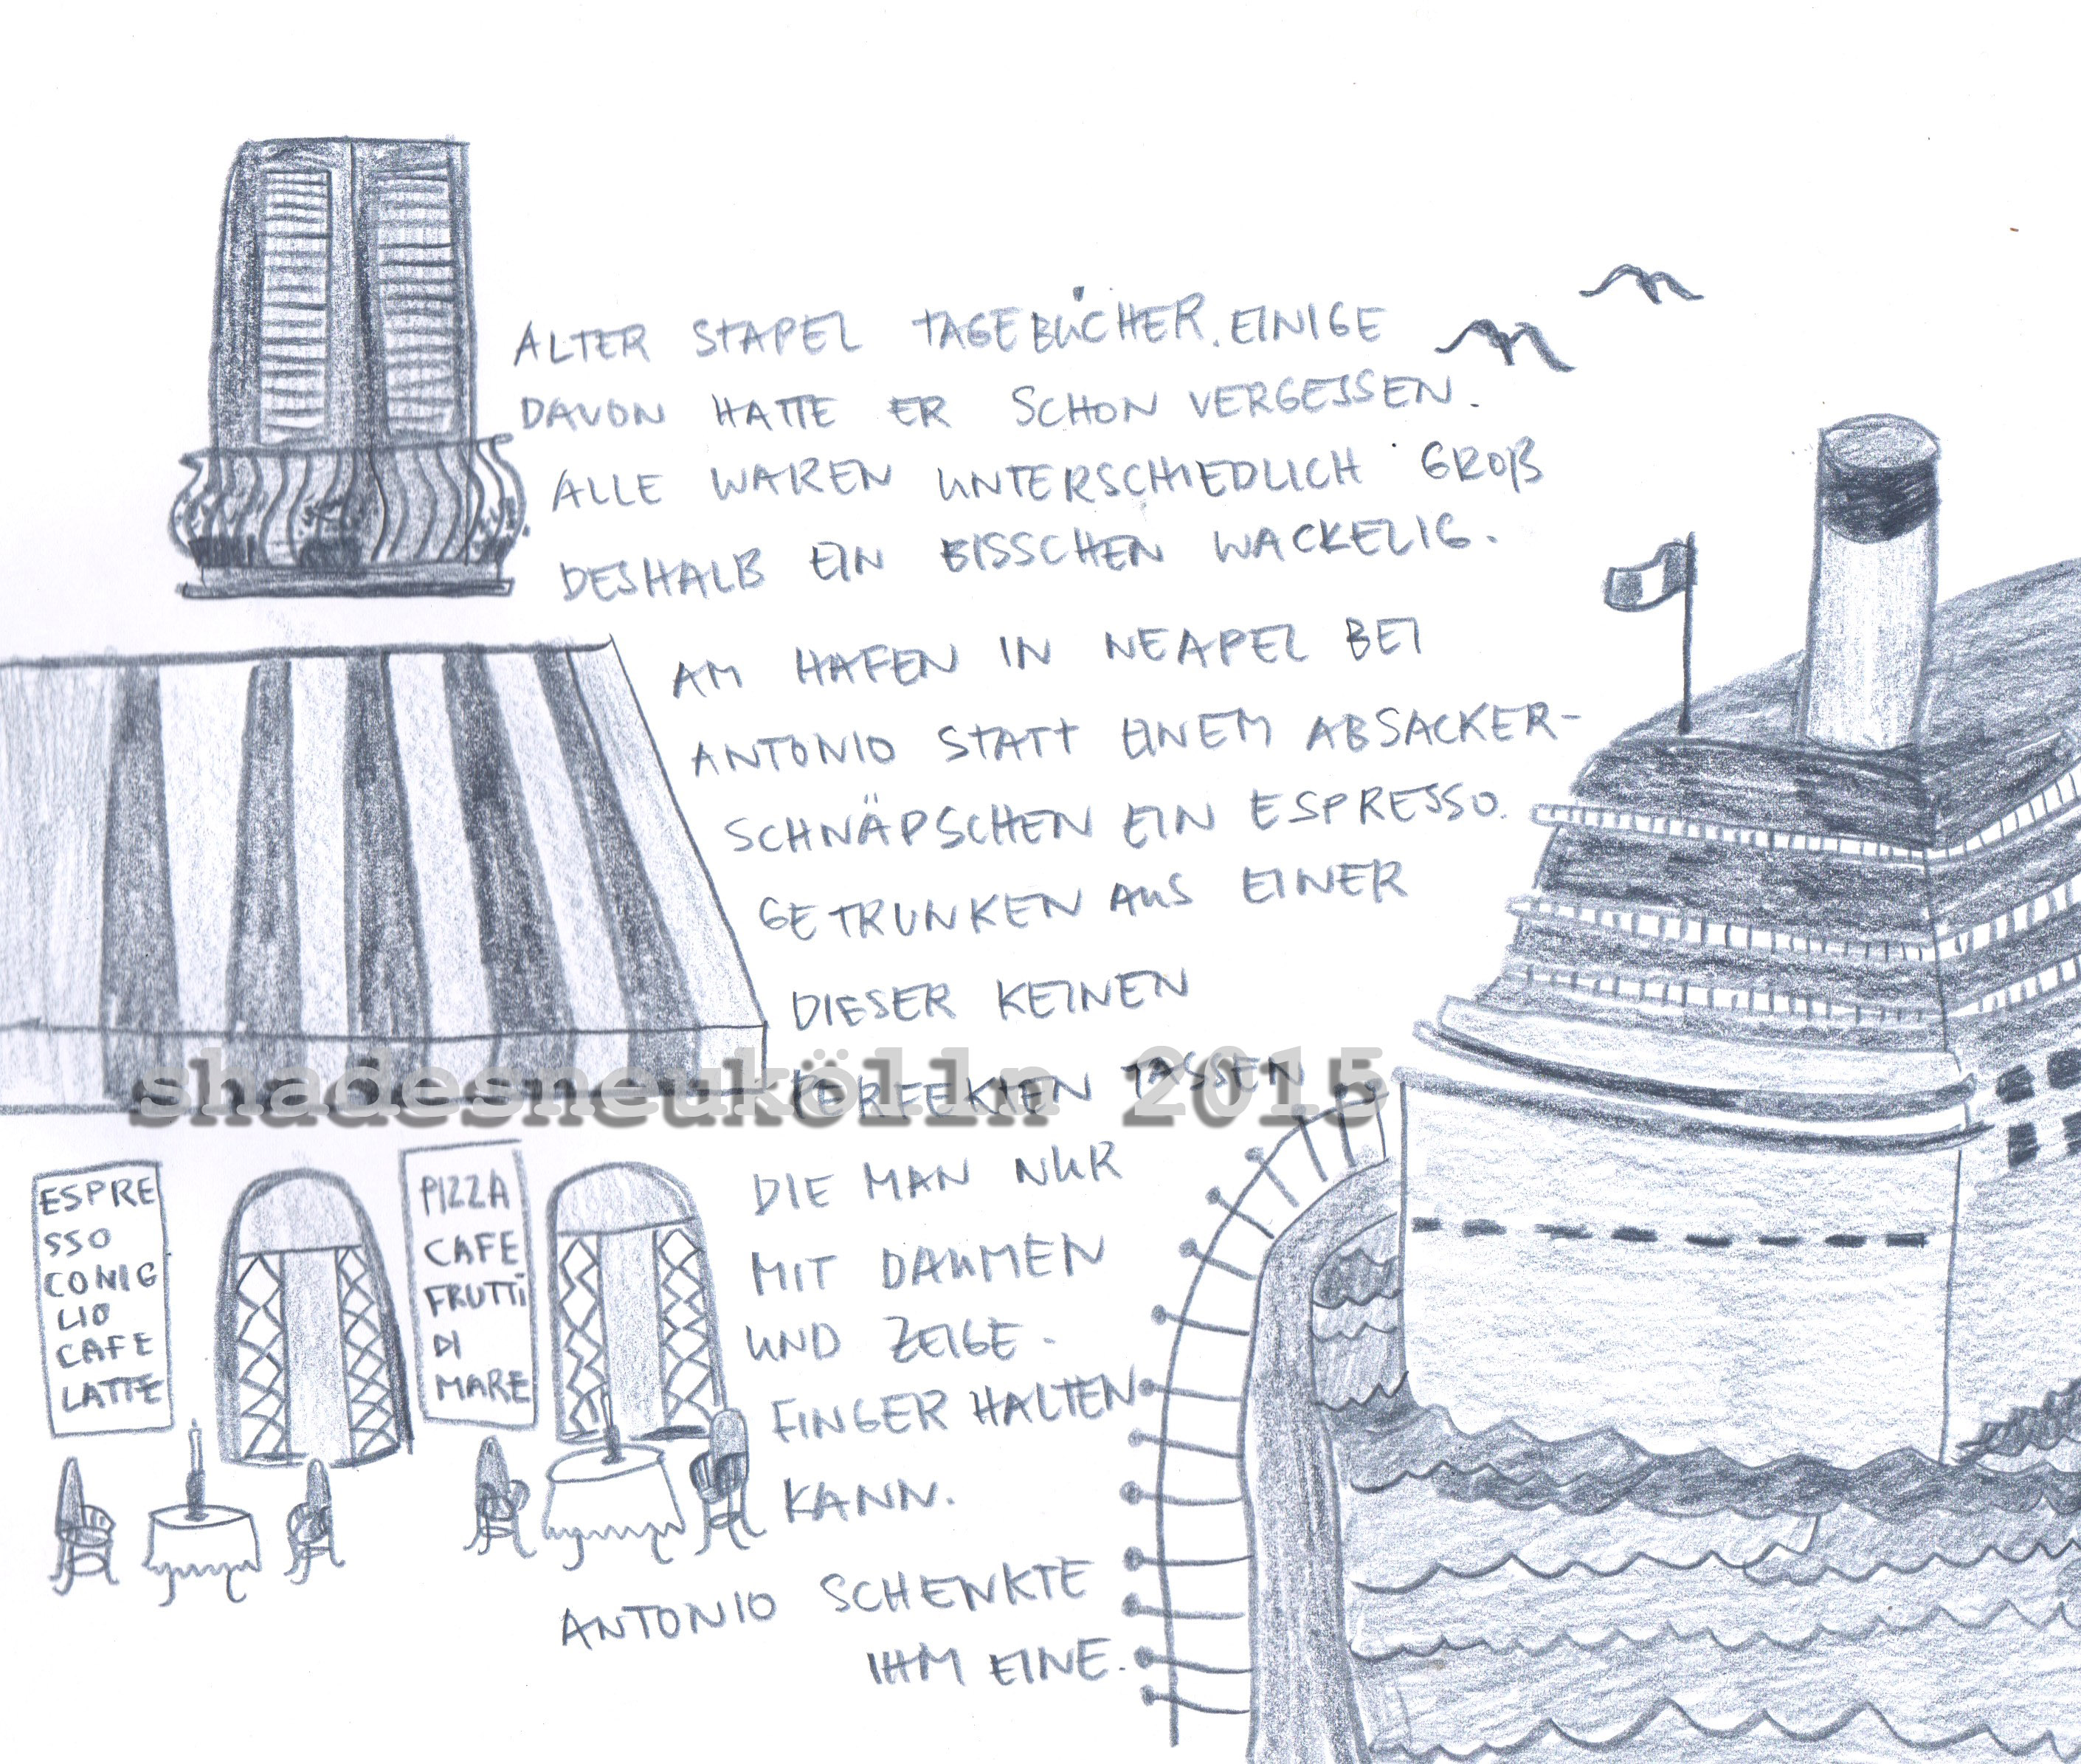 ALTER STAPEL TAGEBÜCHER. EINIGE
DAVON HATTE ER SCHON VERGESSEN.
ALLE WAREN UNTERSCHIEDLICH GROß
DESHALB EIN BISSCHEN WACKELIG.
AM HAFEN IN NEAPEL BEI
ANTONIO STATT EINEM ABSACKER-
SCHNÄPSCHEN EIN ESPRESSO.
GETRUNKEN AUS EINER
DIESER KEINEN
PERFEKTEN TASSEN
shadesneukölln 2015
DIE MAN NUR
MIT DAUMEN
UND ZEIGE-
FINGER HALTEN
KANN.
ANTONIO SCHENKTE
IHM EINE.
ESPRE
SSO
CONIG
LIO
CAFE
LATTE
PIZZA
CAFE
FRUTTi
DI
MARE